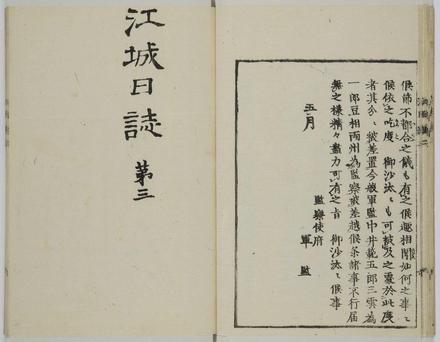 候節不都合之儀も有之候趣相聞如何之事ニ
候依之吃度御沙汰ニも可被及之處於此度
者其分ニ被差置今般軍監中井範五郎三雲為
一郎豆相両州為監察被差越候条諸事不行届
無之様精々盡力可有之旨御沙汰ニ候事
五月
監察使府
軍監
江城日誌
第三